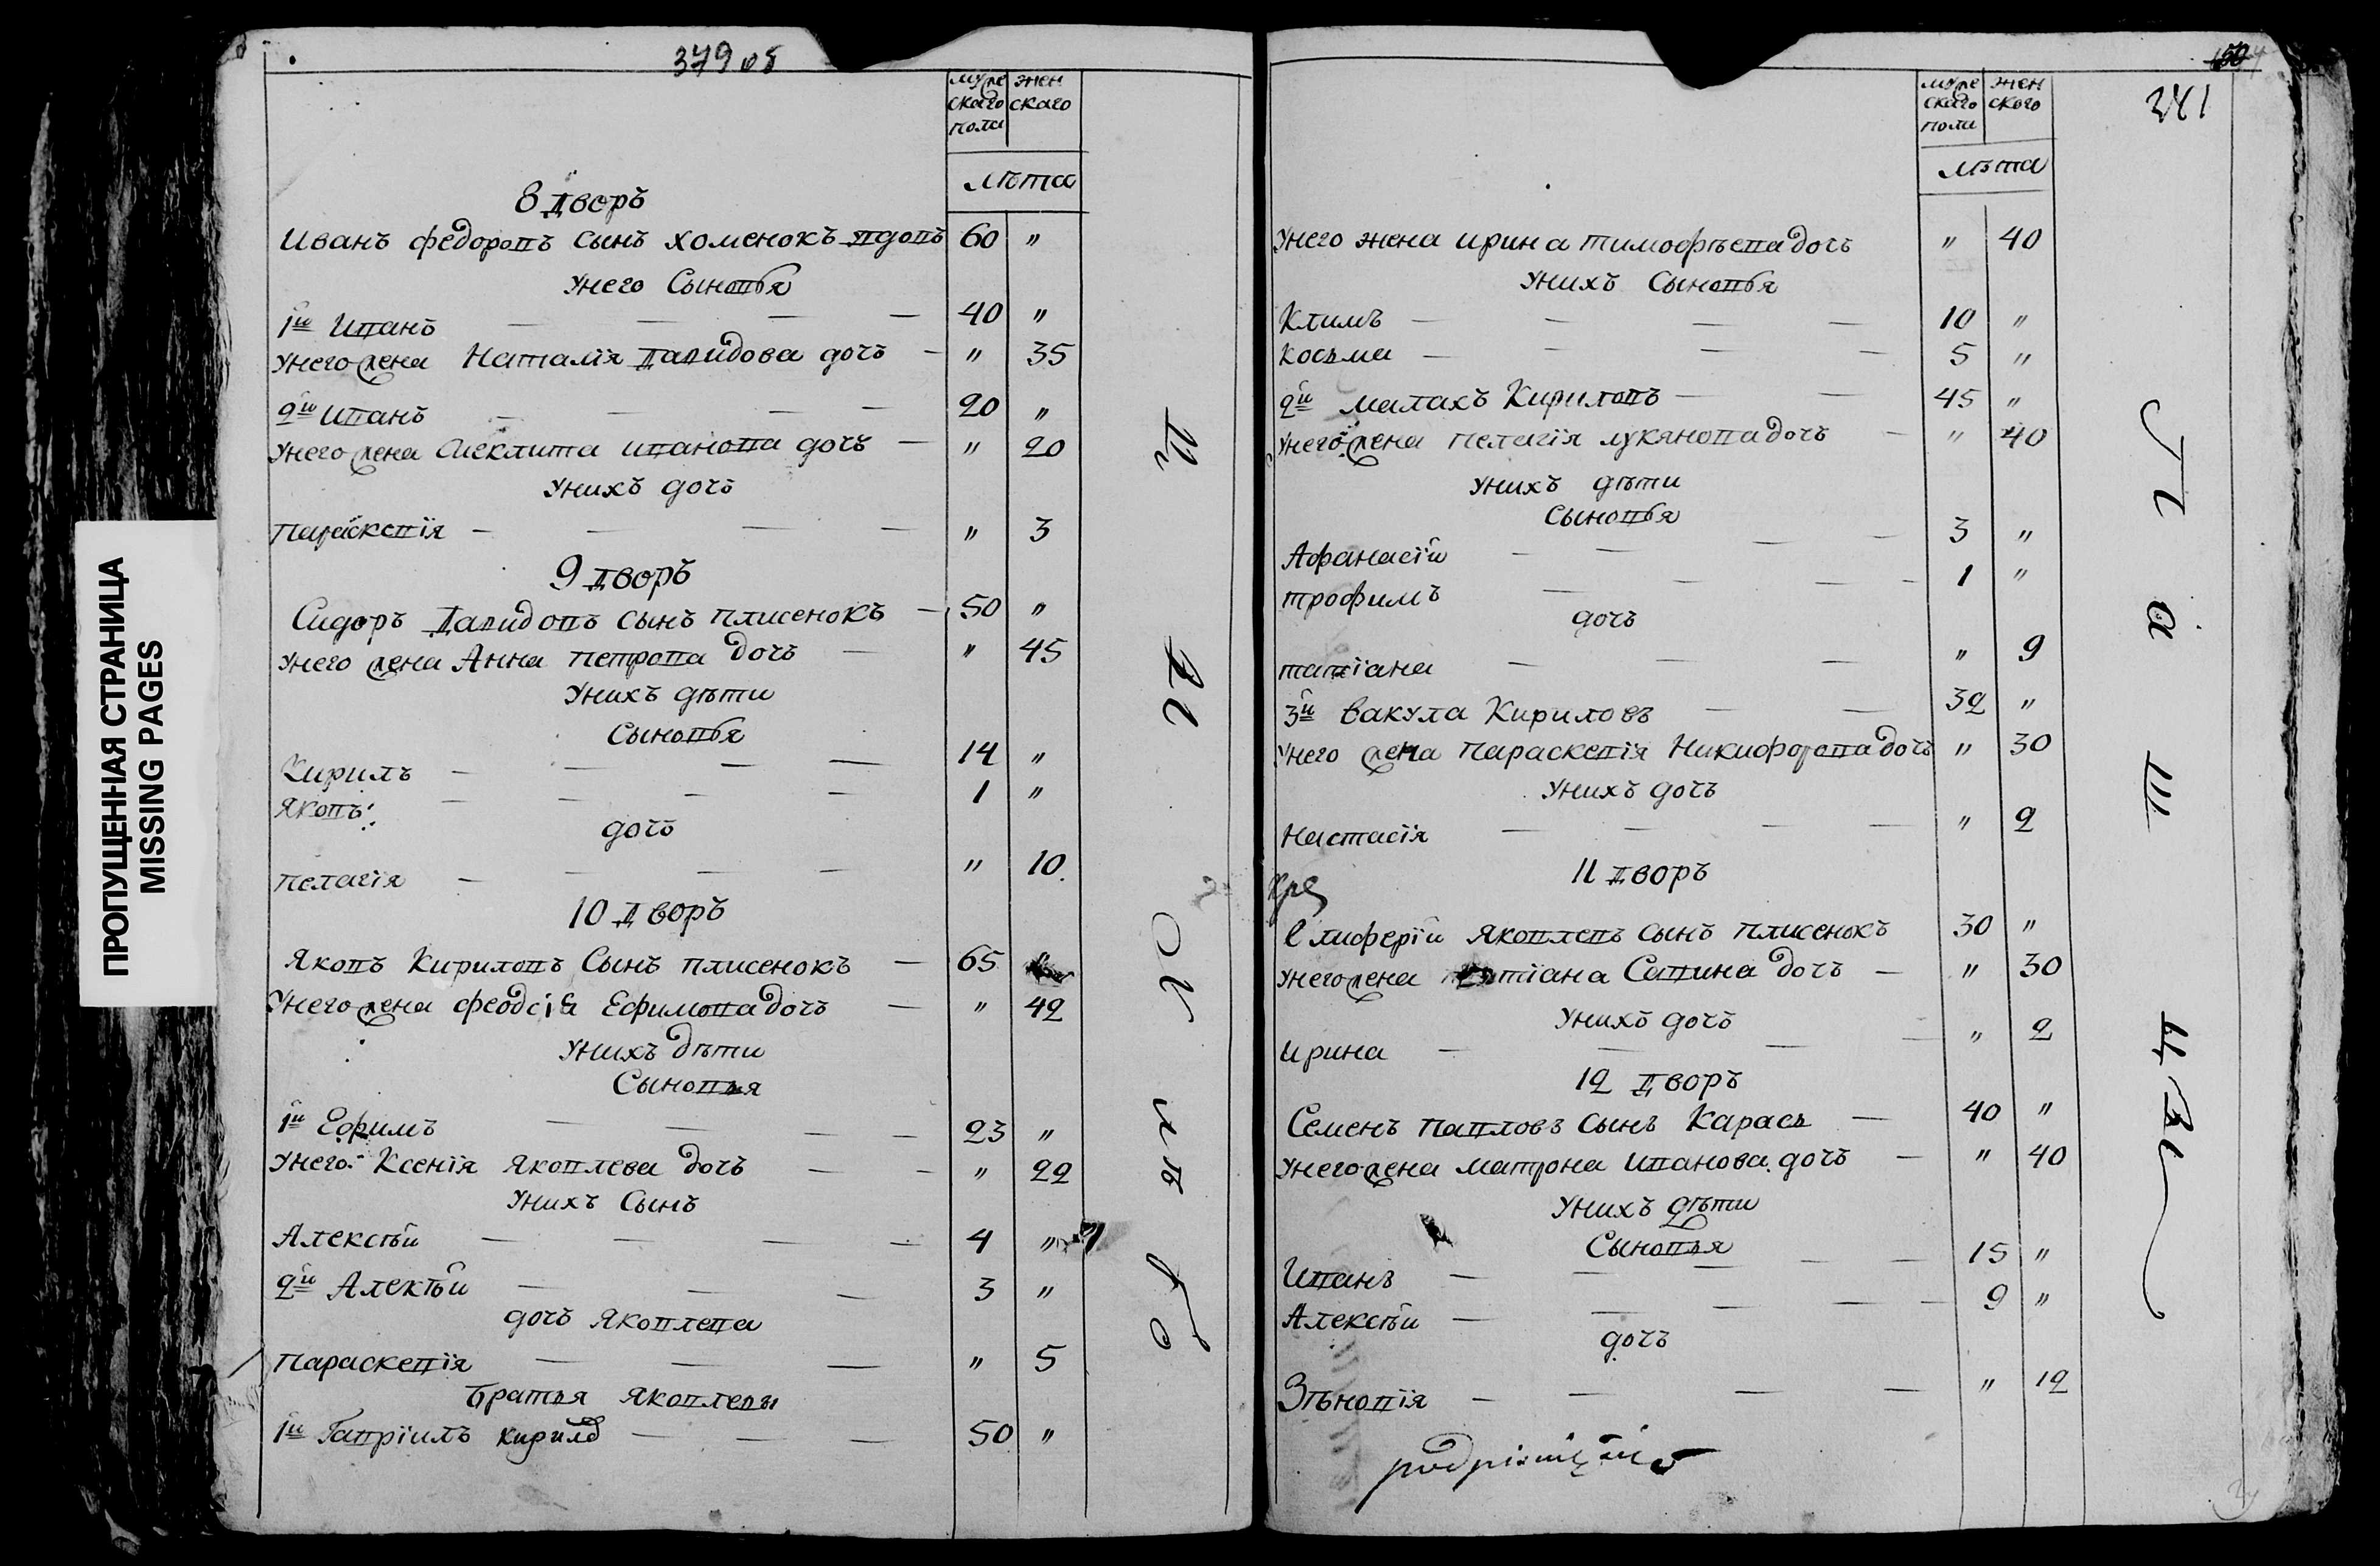 ПРОПУЩЕННАЯ СТРАНИЦА
MISSING PAGES
муже
скаго
пола
жен
скаго
лѣта
8 дворъ
Иванъ федоровъ сынъ хоменокъ вдовъ 60 "
Унего Сыновья
1й Иванъ 40 "
Унего жена Наталія Давидова дочъ " 35
2й иванъ 20 "
Унего жена Меклита иванова дочъ " 20
Унихъ дочъ
Параскевія " 3
9 дворъ
Сидоръ Давидовъ сынъ плисенокъ 50 "
Унего жена Анна петрова дочъ " 45
Унихъ дѣти
Сыновья
Кирилъ 14 "
Яковъ 1 "
дочъ
пелагія " 10
10 дворъ
Яковъ Кириловъ Сынъ плисенокъ 65
Унего жена феодсія Ефимова дочъ " 42
Унихъ дѣти
Сыновья
1й Ефимъ 23 "
Унего Ксенія Яковлева дочъ " 22
Унихъ Сынъ
Алексѣй 4 "
2й Алекѣй 3 "
дочъ Яковлева
Параскевія " 5
братья Яковлевы
1й Гавріилъ кирилов 50 "
муже
скаго
пола
жен
ского
241
лѣта
Унего жена ирина тимофѣева дочъ " 40
Унихъ Сыновья
Климъ 10 "
Косьма 5 "
2й малахъ Кириловъ 45 "
Унего жена пелагія лукянова дочъ " 40
Унихъ дѣти
Сыновья
Афанасій 3 "
трофимъ 1 "
дочъ
татіана " 9
3й Вакула Кириловъ 32 "
Унего жена Параскевія Никифорова дочъ " 30
Унихъ дочъ
Настасія " 2
11 дворъ
Елиферій Яковлевъ сынъ плисенокъ 30 "
Унего жена татіана Савина дочъ " 30
Унихъ дочъ
ирина " 2
12 дворъ
Семенъ павловъ сынъ Карась 40 "
Унего жена матрона иванова дочъ " 40
Унихъ дѣти
Сыновья
Иванъ 15 "
Алексѣй 9 "
дочъ
Зѣновія " 12